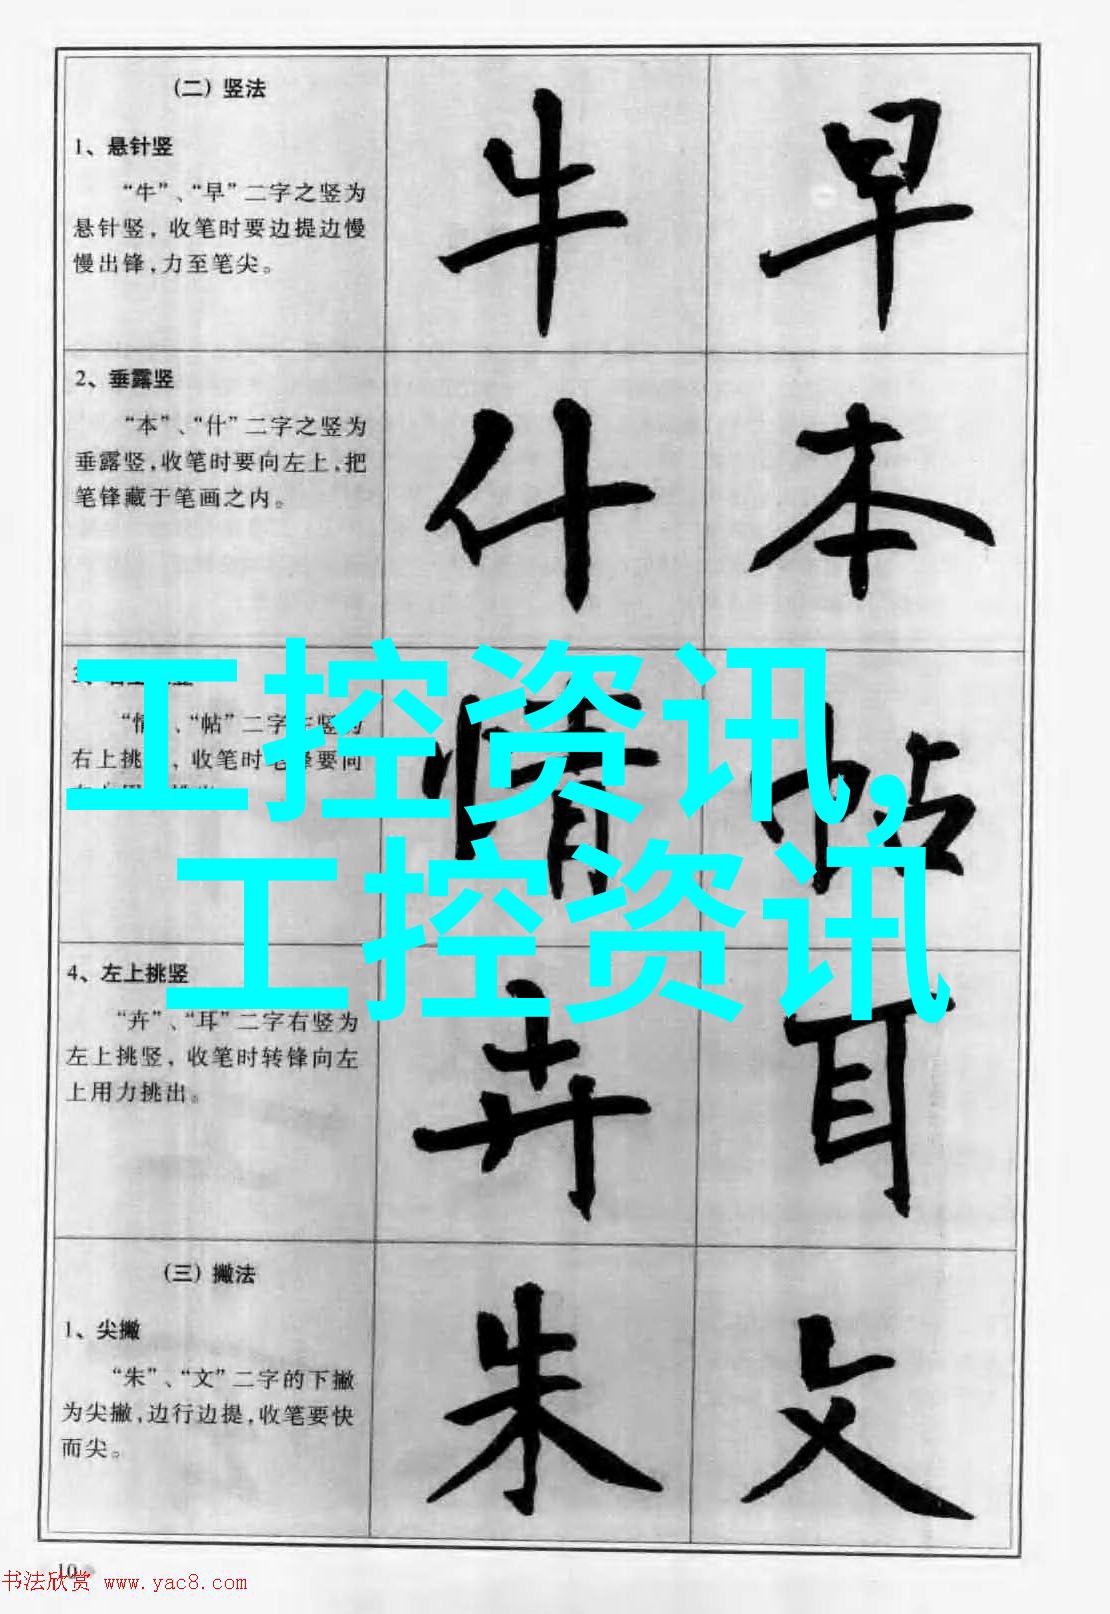 （二）竖法
1、悬针竖
“牛”、“早”二字之竖为
悬针竖，收笔时要边提边慢
慢出锋，力至笔尖。
牛
早
2、垂露竖
“本”、“什”二字之竖为
垂露竖，收笔时要向左上，把
笔锋藏于笔画之内。
什
本
“情”、“帖”二字左竖为
右上挑，收笔时笔锋要向
情
帖
工控资讯,
工控资讯
4、左上挑竖
“卉”、“耳”二字右竖为
左上挑竖，收笔时转锋向左
上用力挑出。
卉
耳
（三）撇法
1、尖撇
“朱”、“文”二字的下撇
为尖撇，边行边提，收笔要快
而尖。
朱
文
10
书法欣赏 www.yac8.com